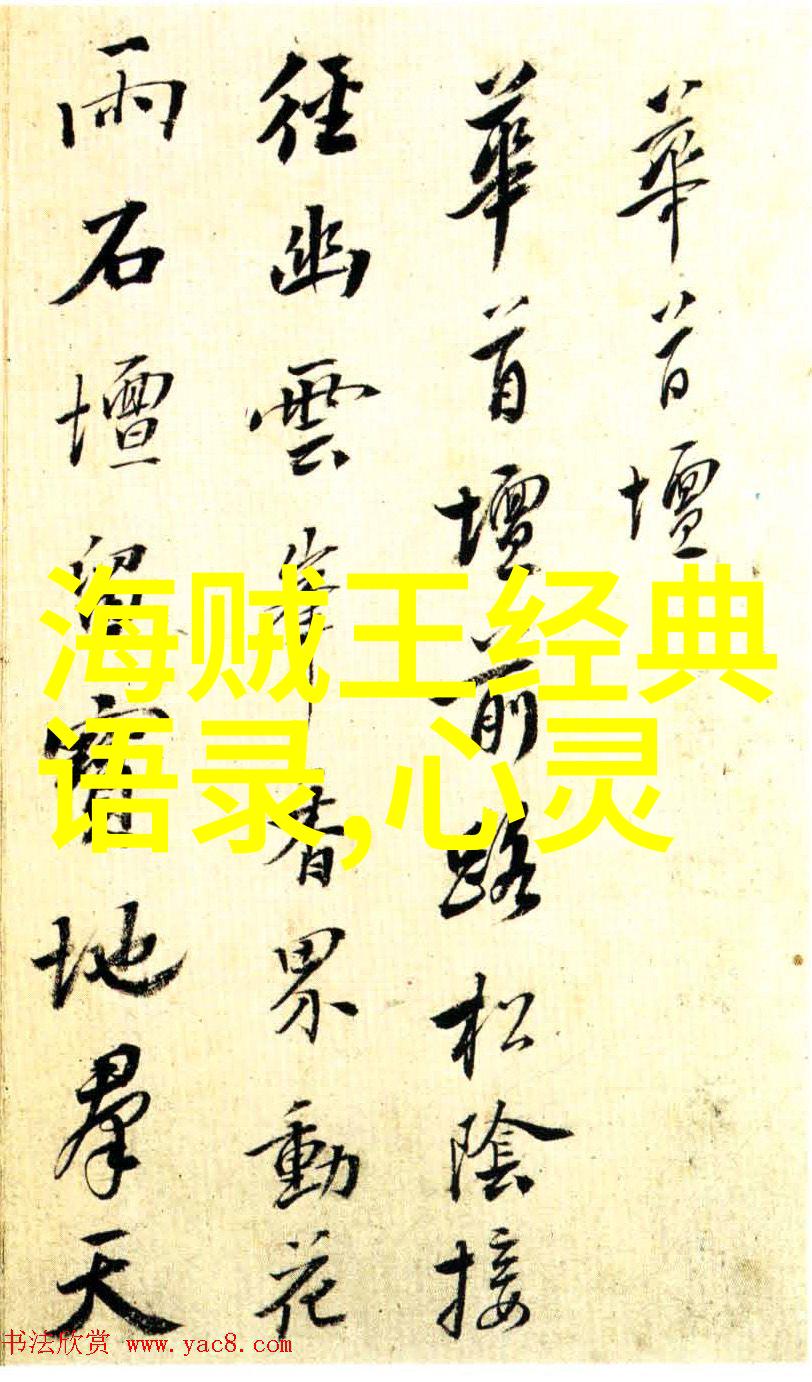 華首壇
華首壇前路松陰接
徑幽雲峯香界動花
雨石壇留寶地羣天
海贼王经典
语录,心灵
书法欣赏 www.yac8.com